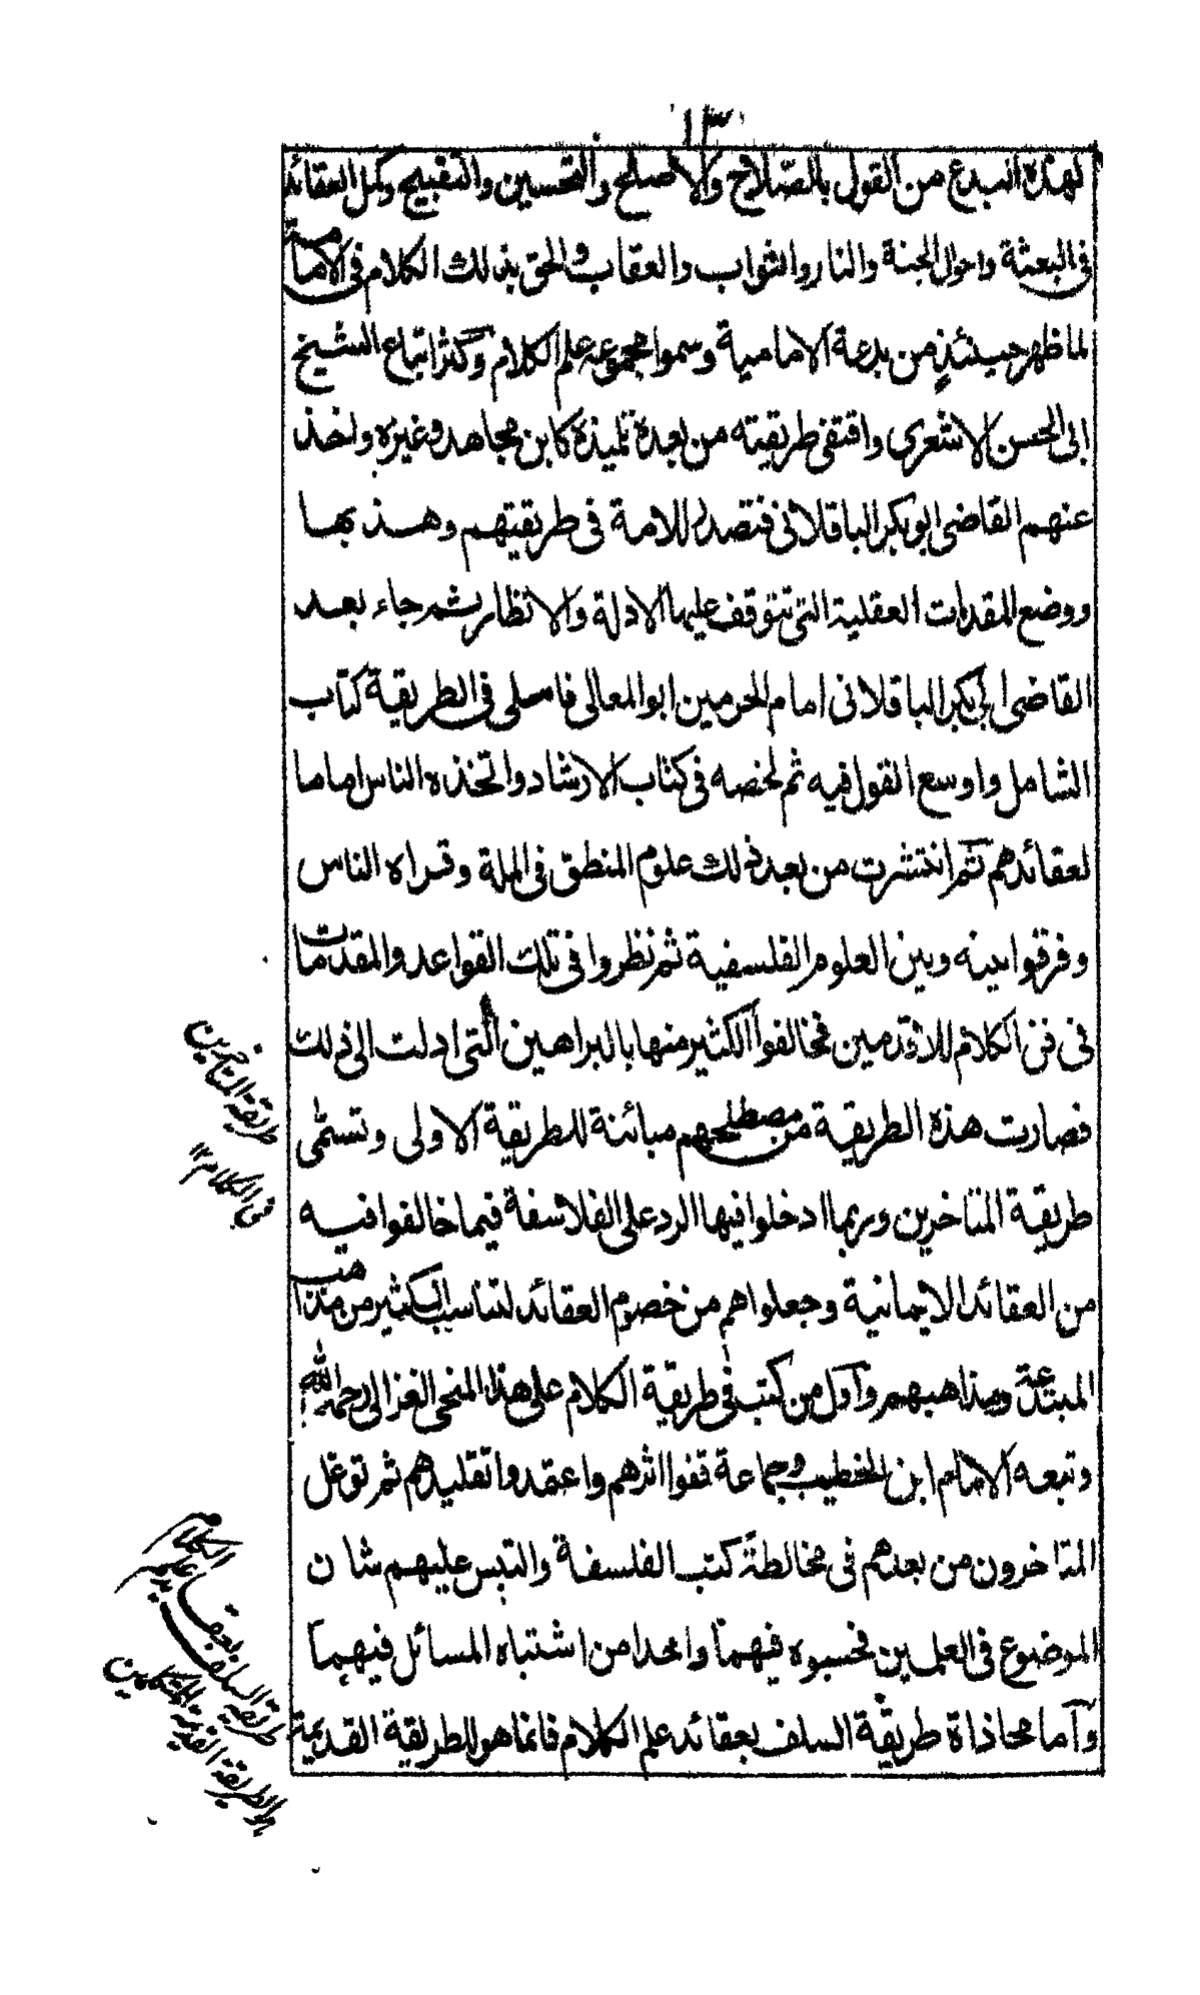 ١٣
لهذه البدع من القول بالصّلاح والاصلح والتحسين والتقبيح وكمل العقائد
فى البعثة واحوال الجنة والنار والثواب والعقاب والحق بذلك الكلام فى الامامة
لما ظهر حينئذٍ من بدعة الامامية وسموا مجموعه علم الكلام وكثر اتباع الشيخ
ابى الحسن الاشعرى واقتفى طريقته من بعده تلميذه كابن مجاهد وغيره واخذ
عنهم القاضى ابو بكر الباقلانى فتصدر للامة فى طريقتهم وهذبها
ووضع المقدمات العقلية التى تتوقف عليها الادلة والانظار ثم جاء بعد
القاضى ابى بكر الباقلانى امام الحرمين ابو المعالى فاملى فى الطريقة كتاب
الشامل واوسع القول فيه ثم لخصه فى كتاب الارشاد واتخذه الناس اماما
لعقائدهم ثم انتشرت من بعد ذلك علوم المنطق فى الملة وقراه الناس
وفرقوا بينه وبين العلوم الفلسفية ثم نظروا فى تلك القواعد والمقدمات
فى فن الكلام للاقدمين فخالفوا الكثير منها بالبراهين التى ادلت الى ذلك
فصارت هذه الطريقة من مصطلحهم مبائنة للطريقة الاولى وتسمّى
طريقة المتاخرين وربما ادخلوا فيها الرد على الفلاسفة فيما خالفوا فيه
من العقائد الايمانية وجعلواهم من خصوم العقائد لتناسب الكثير من مذاهب
المبتدعة ومذاهبهم واول من كتب فى طريقة الكلام على هذا المنحى الغزالى رحمه الله
وتبعه الامام ابن الخطيب وجماعة قفوا اثرهم واعتمدوا تقليدهم ثم توغل
المتاخرون من بعدهم فى مخالطة كتب الفلسفة والتبس عليهم شان
الموضوع فى العلمين فحسبوه فيهما واحدا من اشتباه المسائل فيهما
واما محاذاة طريقة السلف بعقائد علم الكلام فانما هو للطريقة القديمة
طريقة المتاخرين
فى الكلام ١٢
طريقة السلف بعقائد علم الكلام
هو الطريقة القديمة للمتكلمين